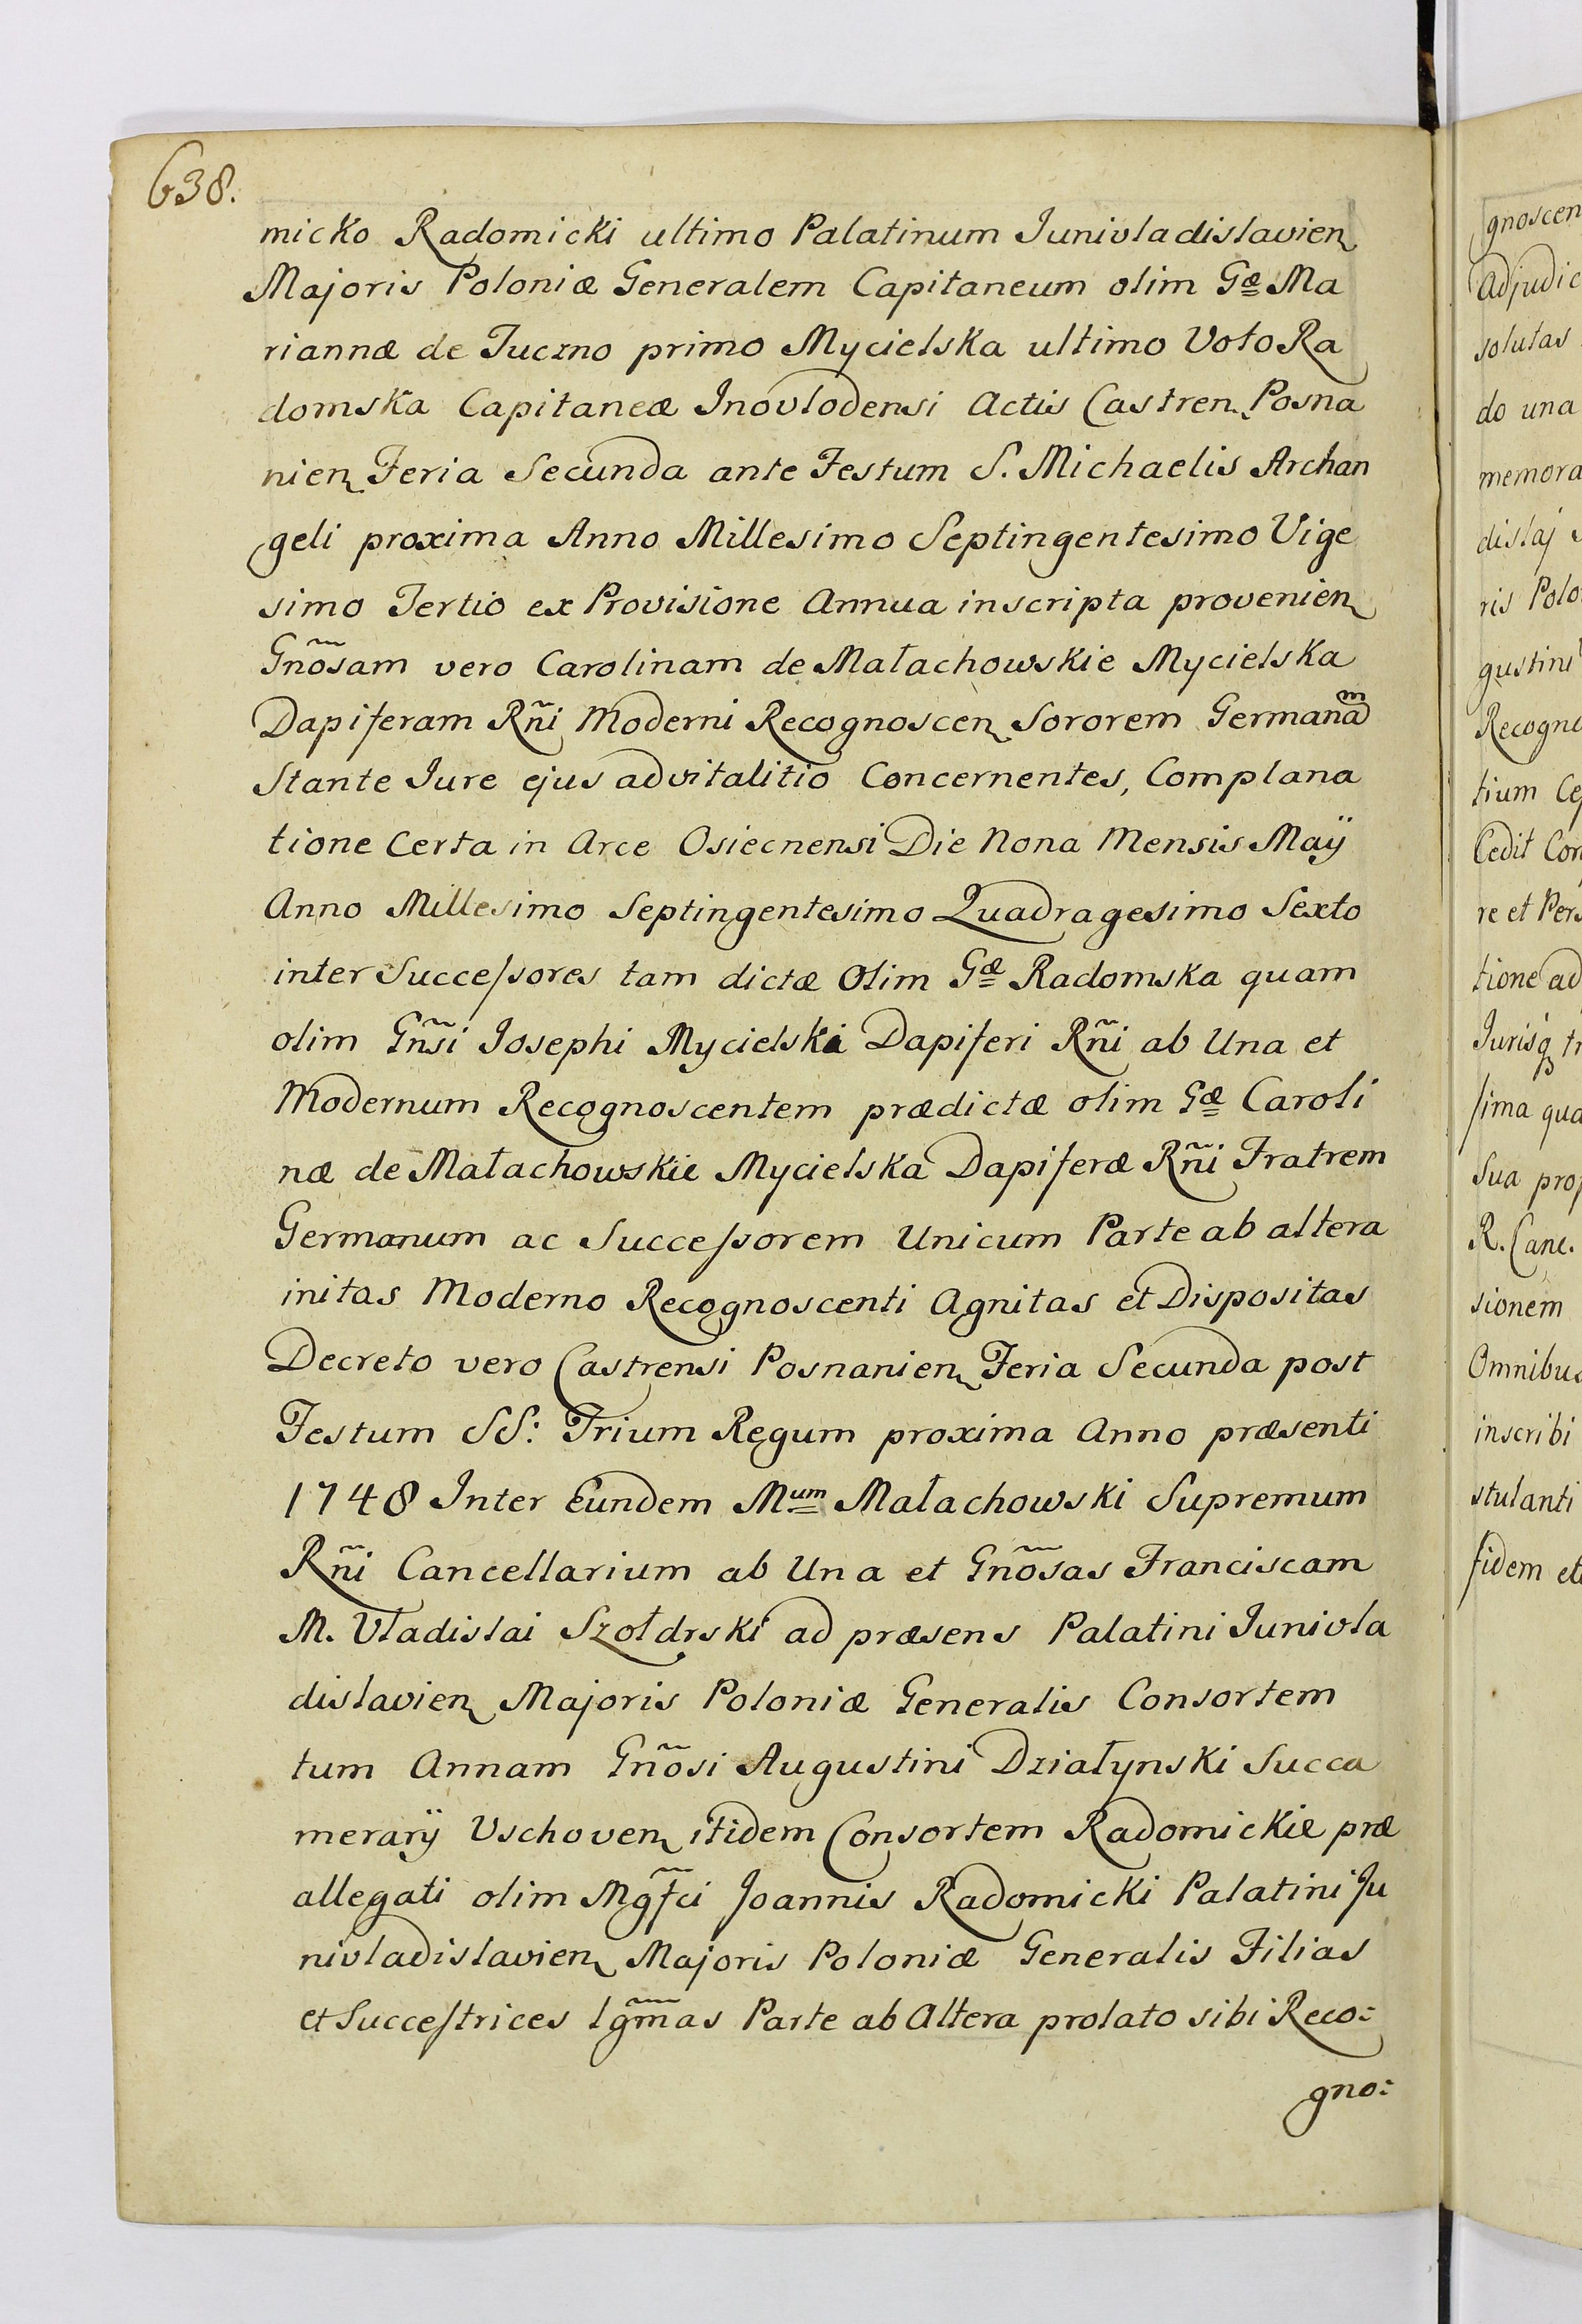 638.
micko Radomicki ultimo Palatinum Junivladislavien
Majoris Poloniæ Generalem Capitaneum olim Gæ Ma
riannæ de Tuczno primo Mycielska ultimo Voto Ra
domska Capitaneæ Inovlodensi Actis Castren Posna
nien Feria Secunda ante Festum S. Michaelis Archan
geli proxima Anno Millesimo Septingentesimo Vige
simo Tertio ex Provisione Annua inscripta provenien
Gñosam vero Carolinam de Małachowskie Mycielska
Dapiferam Rñi Moderni Recognoscen Sororem Germanam
Stante Jure ejus advitalitio Concernentes, Complana
tione Certa in Arce Osiecnensi Die Nona Mensis Maÿ
Anno Millesimo Septingentesimo Quadragesimo Sexto
inter Successores tam dictæ Olim Gæ Radomska quam
olim Gñsi Josephi Mycielski Dapiferi Rñi ab Una et
Modernum Recognoscentem prædictæ olim Gæ Caroli
næ de Małachowskie Mycielska Dapiferæ Rñi Fratrem
Germanum ac Successorem Unicum Parte ab altera
initas Moderno Recognoscenti Agnitas et Dispositas
Decreto vero Castrensi Posnanien Feria Secunda post
Festum SS: Trium Regum proxima Anno præsenti
1748 Inter Eundem Mum Małachowski Supremum
Rñi Cancellarium ab Una et Gñosas Franciscam
M. Vladislai Szołdrski ad præsens Palatini Junivla
dislavien Majoris Poloniæ Generalis Consortem
tum Annam Gñosi Augustini Działynski Succa
merarÿ Vschoven itidem Consortem Radomickie præ
allegati olim Mg̃fci Joannis Radomicki Palatini Ju
nivladislavien Majoris Poloniæ Generalis Filias
et Succestrices lgm̃as Parte ab Altera prolato sibi Reco:
gno:
gnoscen
Adjudic
solutas
do una
memora
dislaj
ris Polo
gustini
Recogno
tium Ce
Cedit Con
re et Pers
tione ad
Jurisq tr
sima qua
Sua prop
R. Canc.
sionem
Omnibus
inscribi
stulanti
fidem et